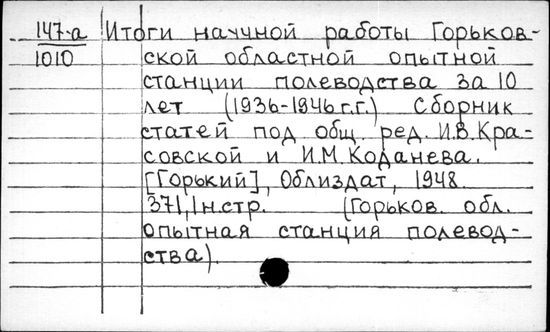 147-а Итоги научной работы Горьков-
1010 ской областной опытной
станции полеводства за 10
лет (1936-1946 г.г.) Сборник
статей под общ. ред. И.В. Кра-
совской и И.М. Коданева.
[Горький], Облиздат, 1948.
371, 1 н.стр. (Горьков. обл.
опытная станция полевод-
ства).